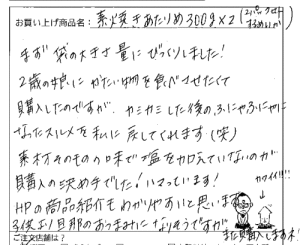 お買い上げ商品名: 素焼きあたりめ300g×2 (2パックセット
するめいか)
まず袋の大きさ量にびっくりしました!
2歳の娘にかたい物を食べさせたくて
購入したのですが、カミカミした後の、ふにゃふにゃに
なったスルメを私に戻してくれます(笑)
素材そのものの味で塩を加えていないのが
購入の決め手でした! ハマっています!
HPの商品紹介もわかりやすいと思います
カワイイ!!!
今後より旦那のおつまみになりそうですが
また購入します
ご注文店舗は?